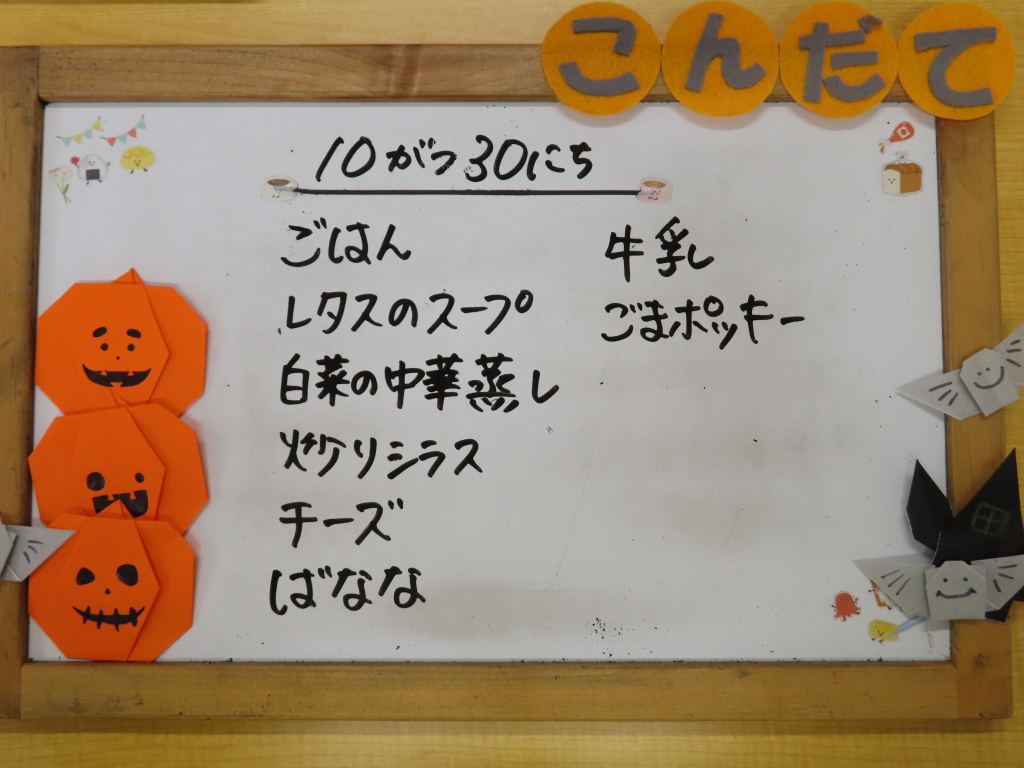 こんだて
10がつ30にち
ごはん
レタスのスープ
白菜の中華蒸し
炒りシラス
チーズ
ばなな
牛乳
ごまポッキー